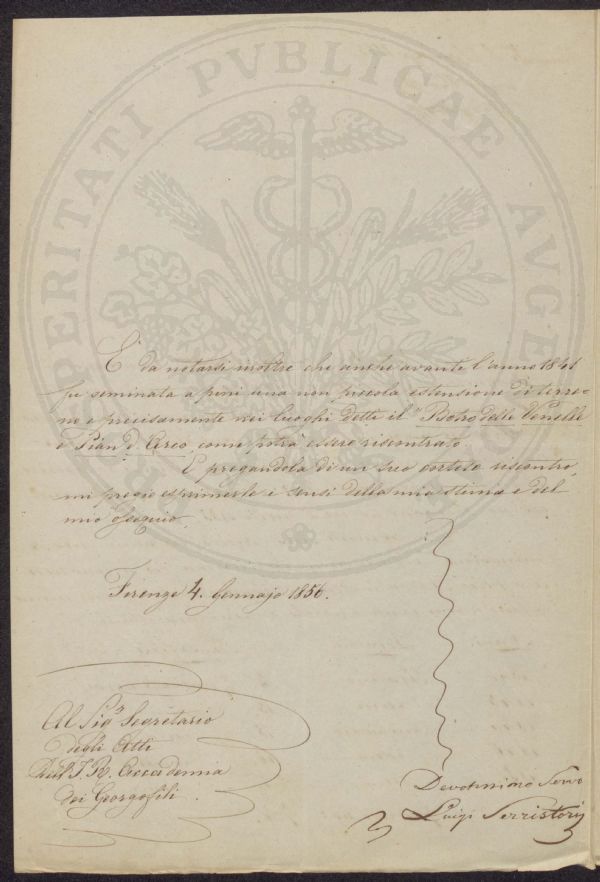 PROSPERITATI PVBLICAE AVGENDAE
E' da notarsi inoltre che anche avante l'anno 1841
fu seminata a pini una non piccola estensione di terre=
no e precisamente nei luoghi detti il "Poetro delle Vendelle
e Pian d' Cerco, come potrà essere riscontrato.
E pregandola di un Suo cortese riscontro,
mi pregio esprimerle i sensi della mia stima e del
mio ossequio.
Firenze 4. Gennajo 1856.
Al Sigr. Segretario
degli Atti
dell' I. R. Accademia
dei Georgofili.
Devotissimo Servo
Luigi Serristori